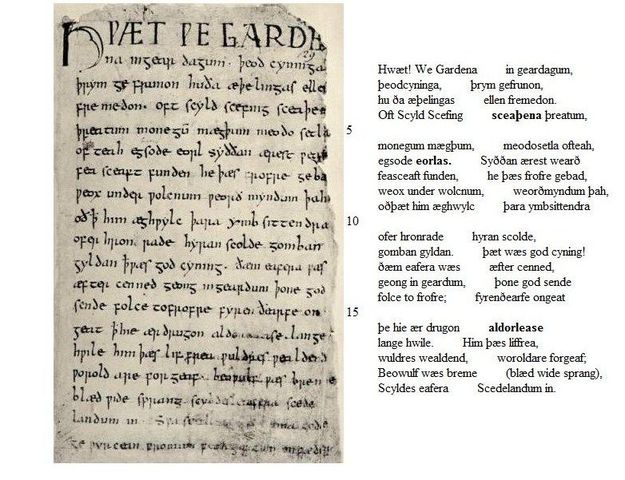 HǷÆT ǷE GARDE
na ingear dagum. þeod cyninga
þrym ge frunon huða æþelingas elle
fremedon. oft scyld scefing sceaþe
þreatum monegū mægþum meodo setla
of teah egsode eorl syððan ærest ƿear
fea sceaft funden he þæs frofre geba
ƿeox under ƿolcnum ƿeorð myndum þah
oð þ him æghƿylc þara ymb sittendra
ofer hron rade hyran scolde gomban
gyldan þ ƿæs god cyning. ðæm eafera ƿæs
æfter cenned geong ingeardum þone god
sende folce tofrofre fyren ðearfe on
geat þ hie ær drugon aldor ase. lange
hƿile him þæs lif frea ƿuldres ƿealdend
ƿorold are for geaf. beoƿulf ƿæs breme
blæd ƿide sprang scyldes eafera scede
landum in.
Hwæt! We Gardena in geardagum,
þeodcyninga, þrym gefrunon,
hu ða æþelingas ellen fremedon.
Oft Scyld Scefing sceaþena þreatum,
5
monegum mægþum, meodosetla ofteah,
egsode eorlas. Syððan ærest wearð
feasceaft funden, he þæs frofre gebad,
weox under wolcnum, weorðmyndum þah,
oðþæt him æghwylc þara ymbsittendra
10
ofer hronrade hyran scolde,
gomban gyldan. þæt wæs god cyning!
ðæm eafera wæs æfter cenned,
geong in geardum, þone god sende
folce to frofre; fyrenðearfe ongeat
15
þe hie ær drugon aldorlease
lange hwile. Him þæs liffrea,
wuldres wealdend, woroldare forgeaf;
Beowulf wæs breme (blæd wide sprang),
Scyldes eafera Scedelandum in.